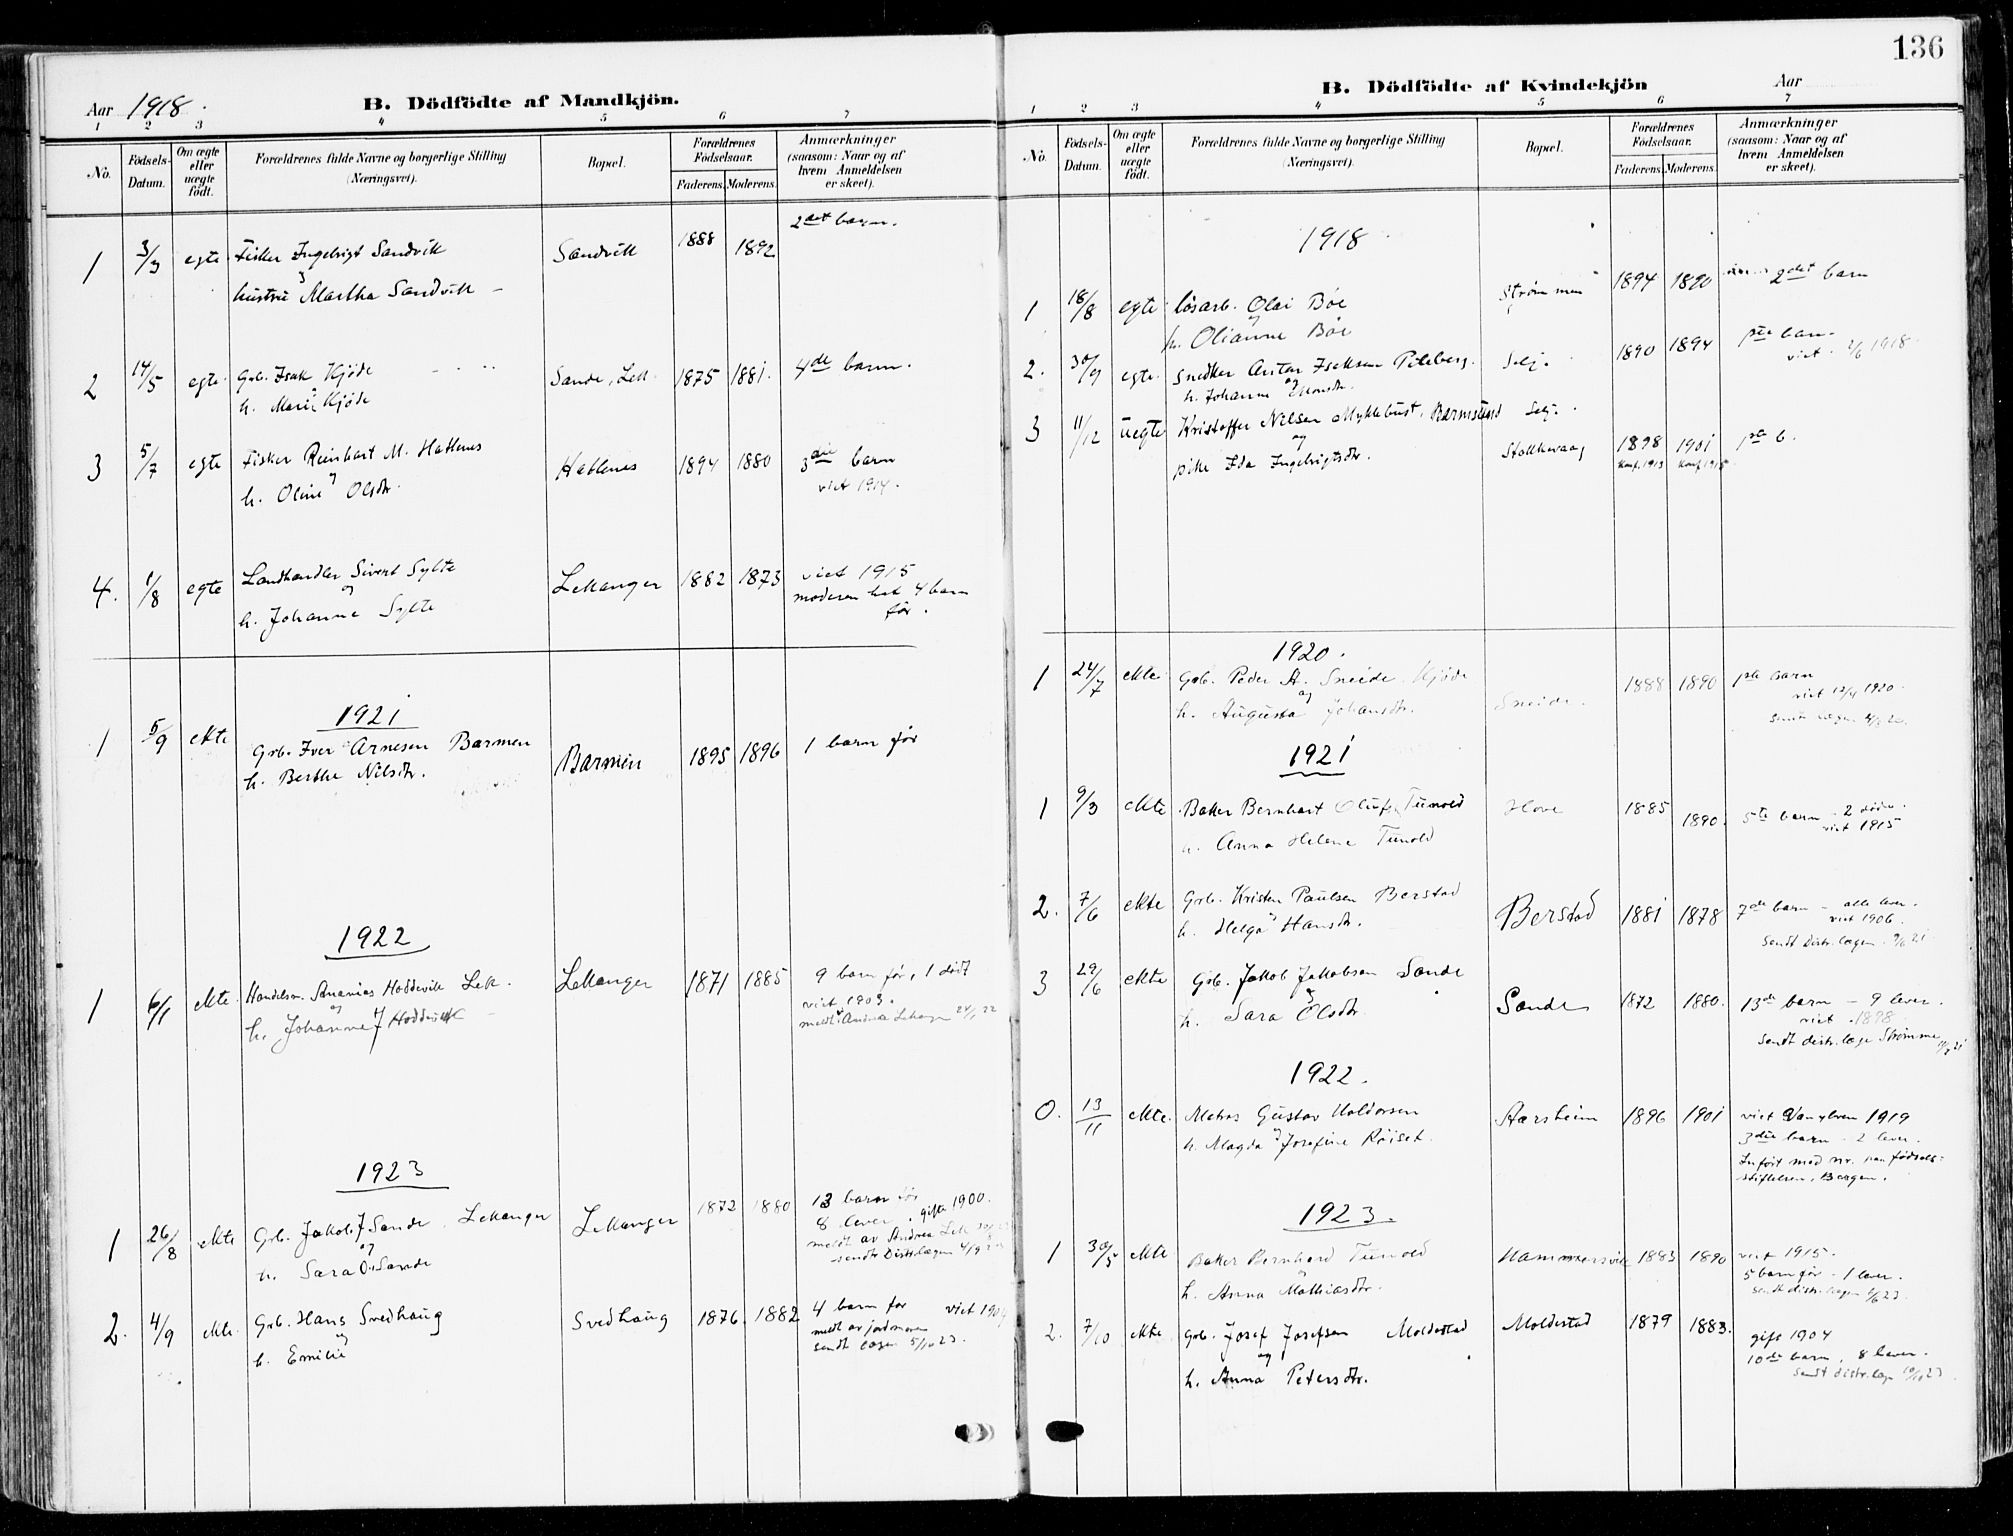 136
Aar 1918.
B. Dödfödte af Mandkjön.
1 2 3 4 5 6 7
No.
Födsels-Datum.
Om ægte eller uægte födt.
Forældrenes fulde Navne og borgerlige Stilling (Næringsvei).
Bopæl.
Forældrenes Födselsaar.
Faderens. Moderens.
Anmærkninger (saasom: Naar og af hvem Anmeldelsen er skeet).
2det barn.
1 3/3 egte Fisker Ingebrigt Sandvik Sandvik 1888 1892
hustru Martha Sandvik
2 14/5 egte Grb. Isak Kjøde Sande, Lek. 1875 1881. 4de barn.
h. Marie Kjøde
3 5/7 egte Fisker Reinhart M. Hatlenes Hatlenes 1894 1880 3die barn
h. Oline Olsdtr. viet 1914.
4. 1/8 egte Landhandler Sivert Sylte Lekanger 1882 1873 viet 1915
og moderen hat 4 barn
h. Johanne Sylte før.
1921
1 5/9 ekte Grb. Iver Arnesen Barmen Barmen 1895 1896 1 barn før
h. Berthe Nilsdtr.
1922
1 6/1 ekte. Handelsm. Ananias Hoddevik Lek. Lekanger 1871 1885 9 barn før, 1 dødt
og viet 1903.
h. Johanne J Hoddevik meldt Andrea Lekanger 24/1 22
1923
1 26/8 ekte Grb. Jakob J Sande, Lekanger Lekanger 1872 1880 13 barn før
og 8 lever. gifte 1900.
h. Sara O. Sande meldt av Andrea Lek
sendt Distr.lægen 4/9
2. 4/9 ekte. Grb. Hans Svedhaug Svedhaug 1876. 1882 4 barn før viet 1904
og meldt av jordmoren
h. Emilie sendt lægen 5/10 23.
B. Dödfödte af Kvindekjön
Aar
1 2 3 4 5 6 7
No.
Födsels-Datum.
Om ægte eller uægte födt.
Forældrenes fulde Navne og borgerlige Stilling (Næringsvei).
Bopæl.
Forældrenes Födselsaar.
Faderens. Moderens.
Anmærkninger (saasom: Naar og af hvem Anmeldelsen er skeet).
1918
1 18/8 egte løsarb. Olai Bøe Strømmen 1894 1890 2det barn
og
h. Olianne Bøe
2. 30/9 egte. Snedker Anton Isaksen Peleberg. Selj. 1890 1894 1ste barn
h. Johanne viet 2/6 1918.
3 11/12 uegte Kristoffer Nilsen Myklebust, Barmsund Selj.
og Stokkevaag 1898 1901 1ste b.
pike Ida Ingebrigtsdtr. konf. 1913 konf. 1915
1920.
1 24/7 ekte Grb. Peder A. Sneide Kjøde Sneide. 1888 1890 1ste barn
og viet 12/4 1920.
h. Augusta Johansdtr. sendt lægen
1921
1 9/3 ekte Baker Bernhart Oluf Tunold Hove 1885 1890. 5te barn - 2 døde.
h. Anna Helene Tunold viet 1915
2. 7/6 ekte Grb. Kristen Paulsen Berstad Berstad 1881 1878 7de barn - alle lever.
h. Helga Hansdtr. viet 1906.
Sendt Distr.lægen 9/6 21
3 29/6 ekte Grb. Jakob Jakobsen Sande Sande 1872 1880. 13de barn - 9 lever.
h. Sara Olsdtr. viet 1898
sendt distr.læge Strømme 21
1922.
0. 13/11 ekte. Matros Gustav Haldorsen Aarsheim 1896 1901 viet Vanylven 1919
h. Magda Josefine Røiset. 3die barn - 2 lever.
Indført med nr. paa fødsels-
stiftelsen, Bergen.
1923.
1 30/5 ekte Baker Bernhard Tunold Hammersvik 1883 1890 viet 1915.
h. Anna Mathiasdtr. 5 barn før - 1 lever.
sendt distr.lægen 4/6 23.
2. 7/10 ekte Grb. Josef Josefsen Moldestad Moldestad 1879 1883. gift 1904
og 10de barn, 8 lever.
h. Anna Petersdtr. Sendt distr.læge 10/10 23